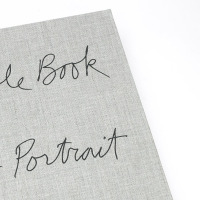 le Book
Portrait